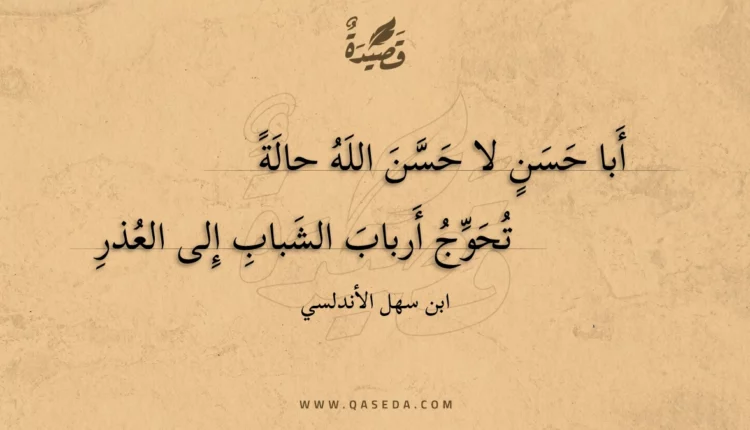 قَصِيدَةٌ
أَبا حَسَنٍ لا حَسَّنَ اللَهُ حالَةً
تُحَوِّجُ أَربابَ الشَبابِ إِلى العُذرِ
ابن سهل الأندلسي
WWW.QASEDA.COM